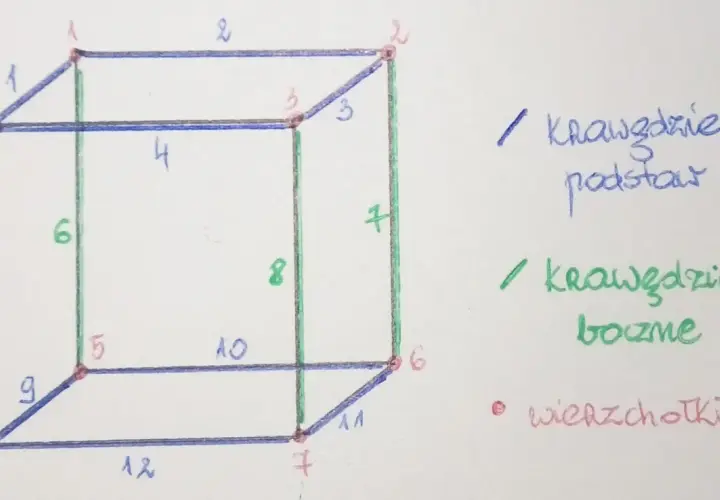 1
2
2
1
3
3
4
6
7
8
5
10
6
9
11
12
7
/ krawędzie
podstaw
/ krawędzi
boczne
• wierzchołki